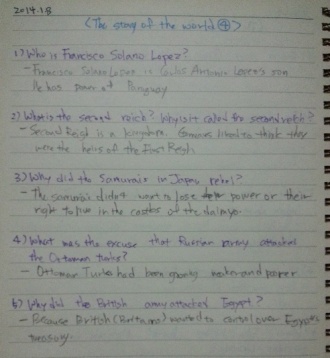 2014.1.8
<The story of the world ④>
1) Who is Francisco Solano Lopez?
- Francisco Solano Lopez is Carlos Antonio Lopez's son
He has power of Paraguay
2) What is the second reich? Why is it called the second reich?
- Second Reigh is a kingdom. Germans liked to think they
were the heirs of the First Reigh
3) Why did the Samurais in Japan rebel?
- The samurai didn't want to lose power or their
right to live in the castles of the daimyo.
4) What was the excuse that Russian army attacked
the Ottoman turks?
- Ottoman Turks had been growing weaker and poorer
5) Why did the British army attacked Egypt?
- Because British (Britains) wanted to control over Egypt's
treasury.